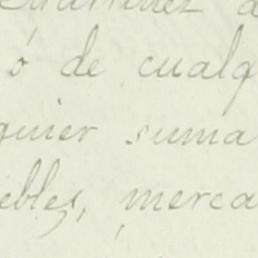 ó de cualq
quier suma
ebles, merca